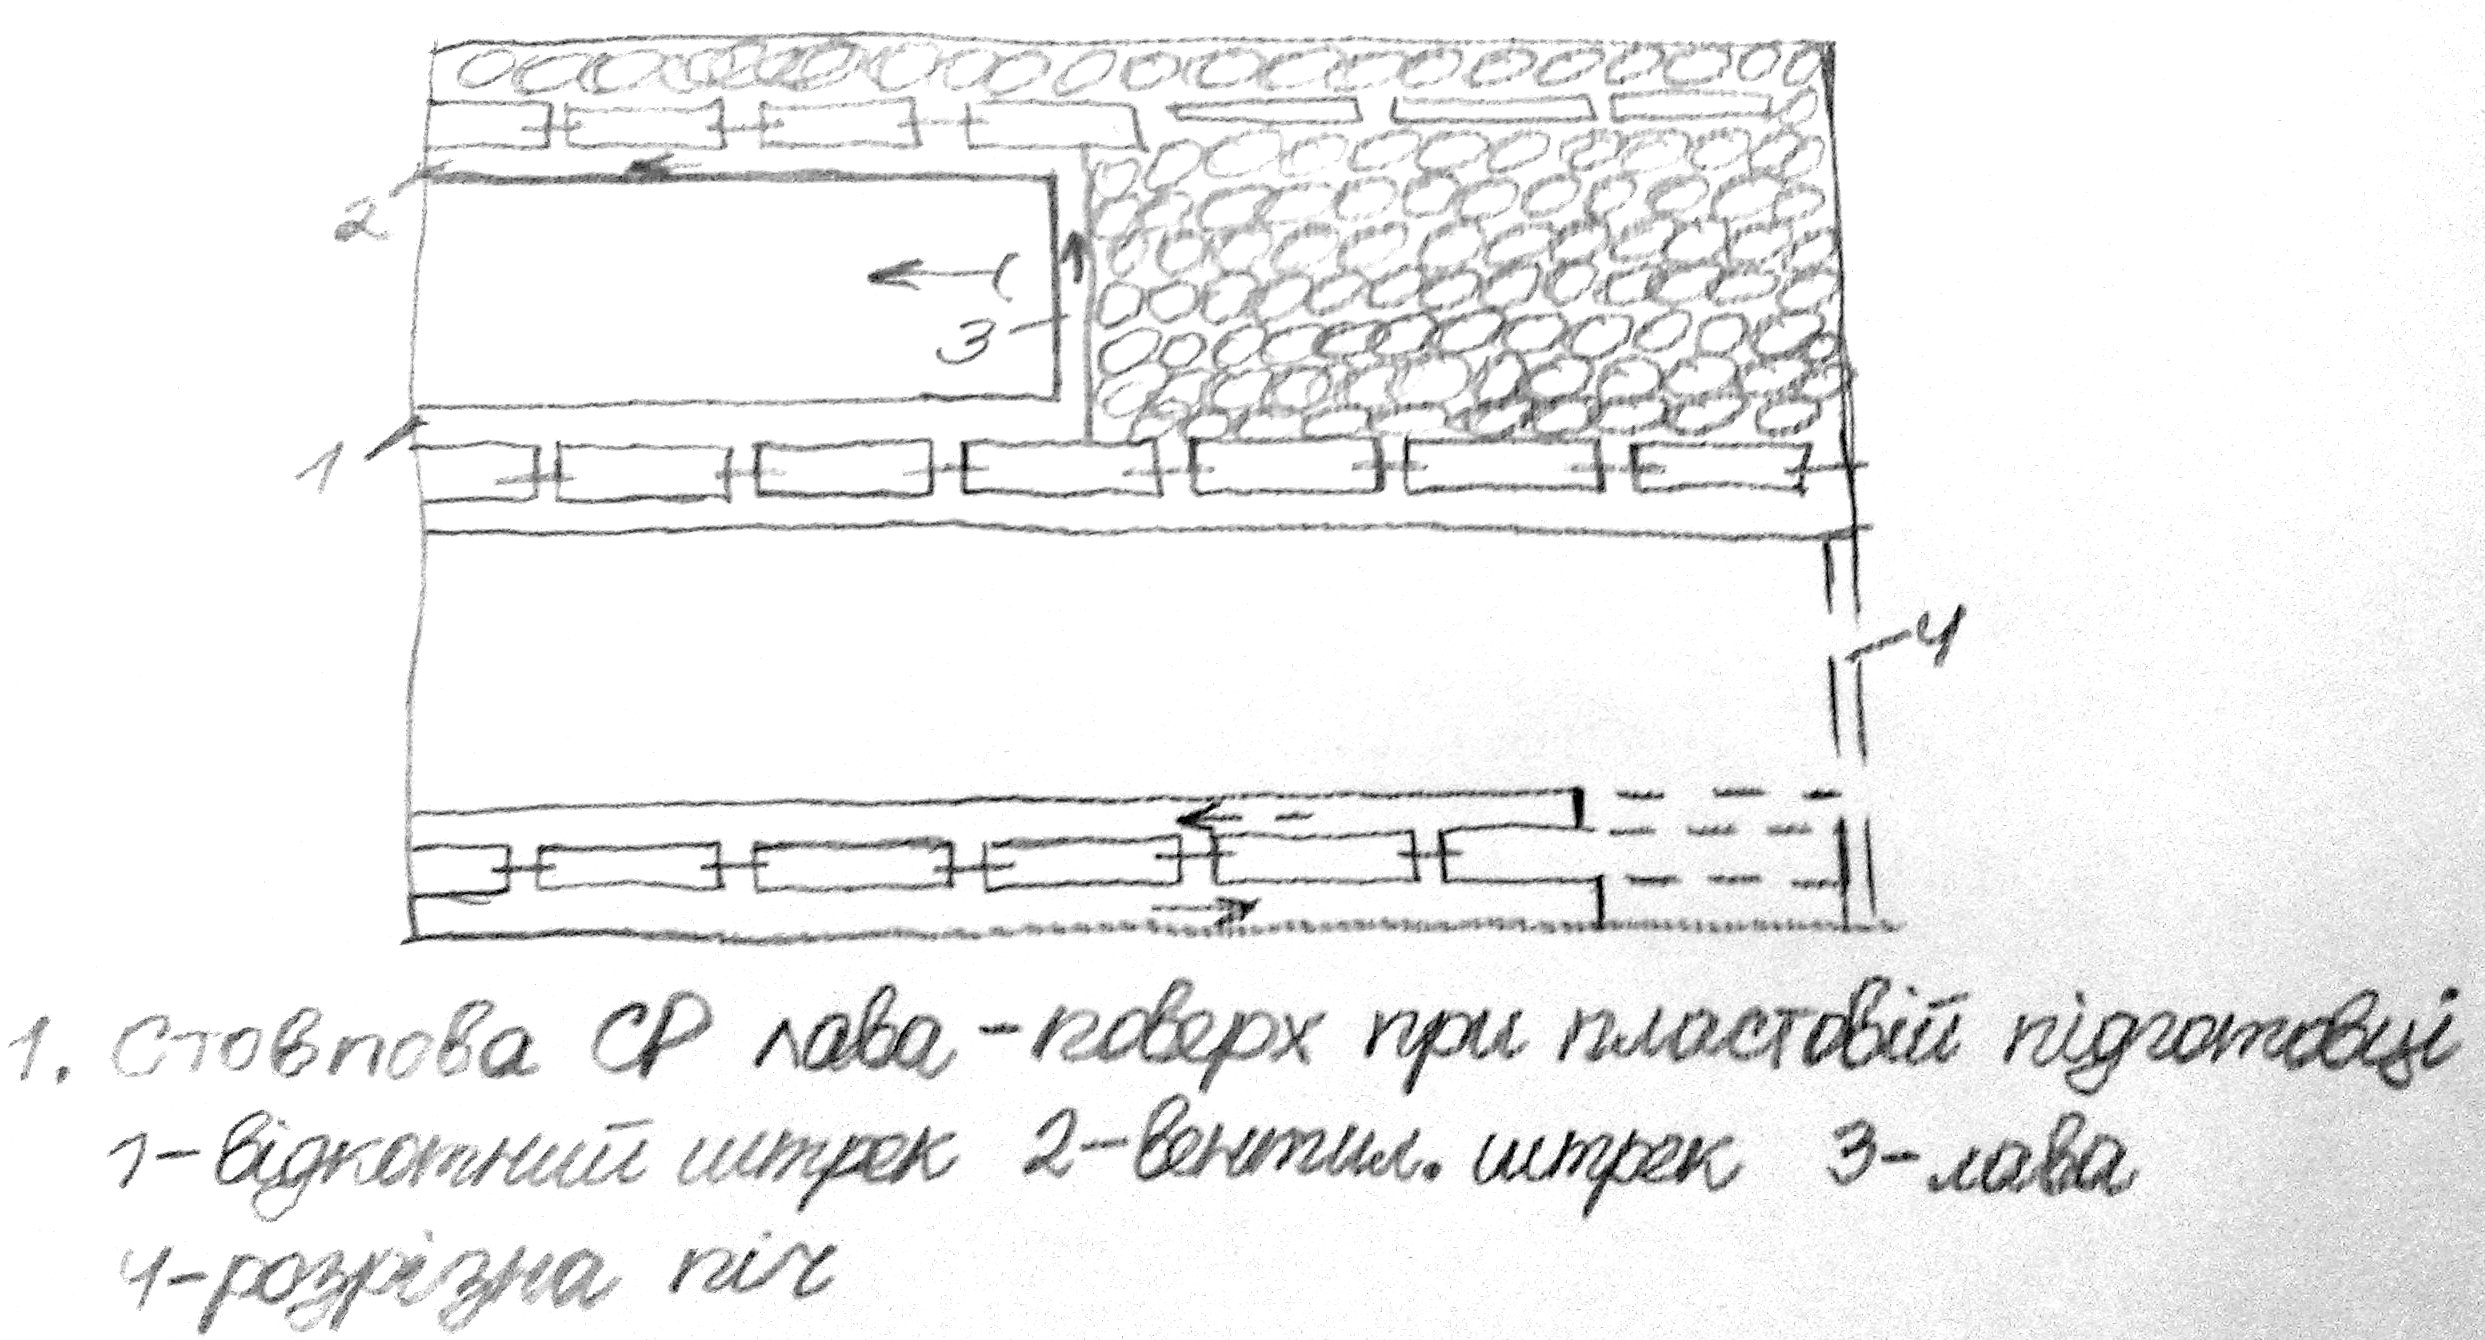 2
3
1
4
1. Стовпова СР лава-поверх при пластовій підготовці
1-відкотний штрек 2-вентил. штрек 3-лава
4-розрізна піч